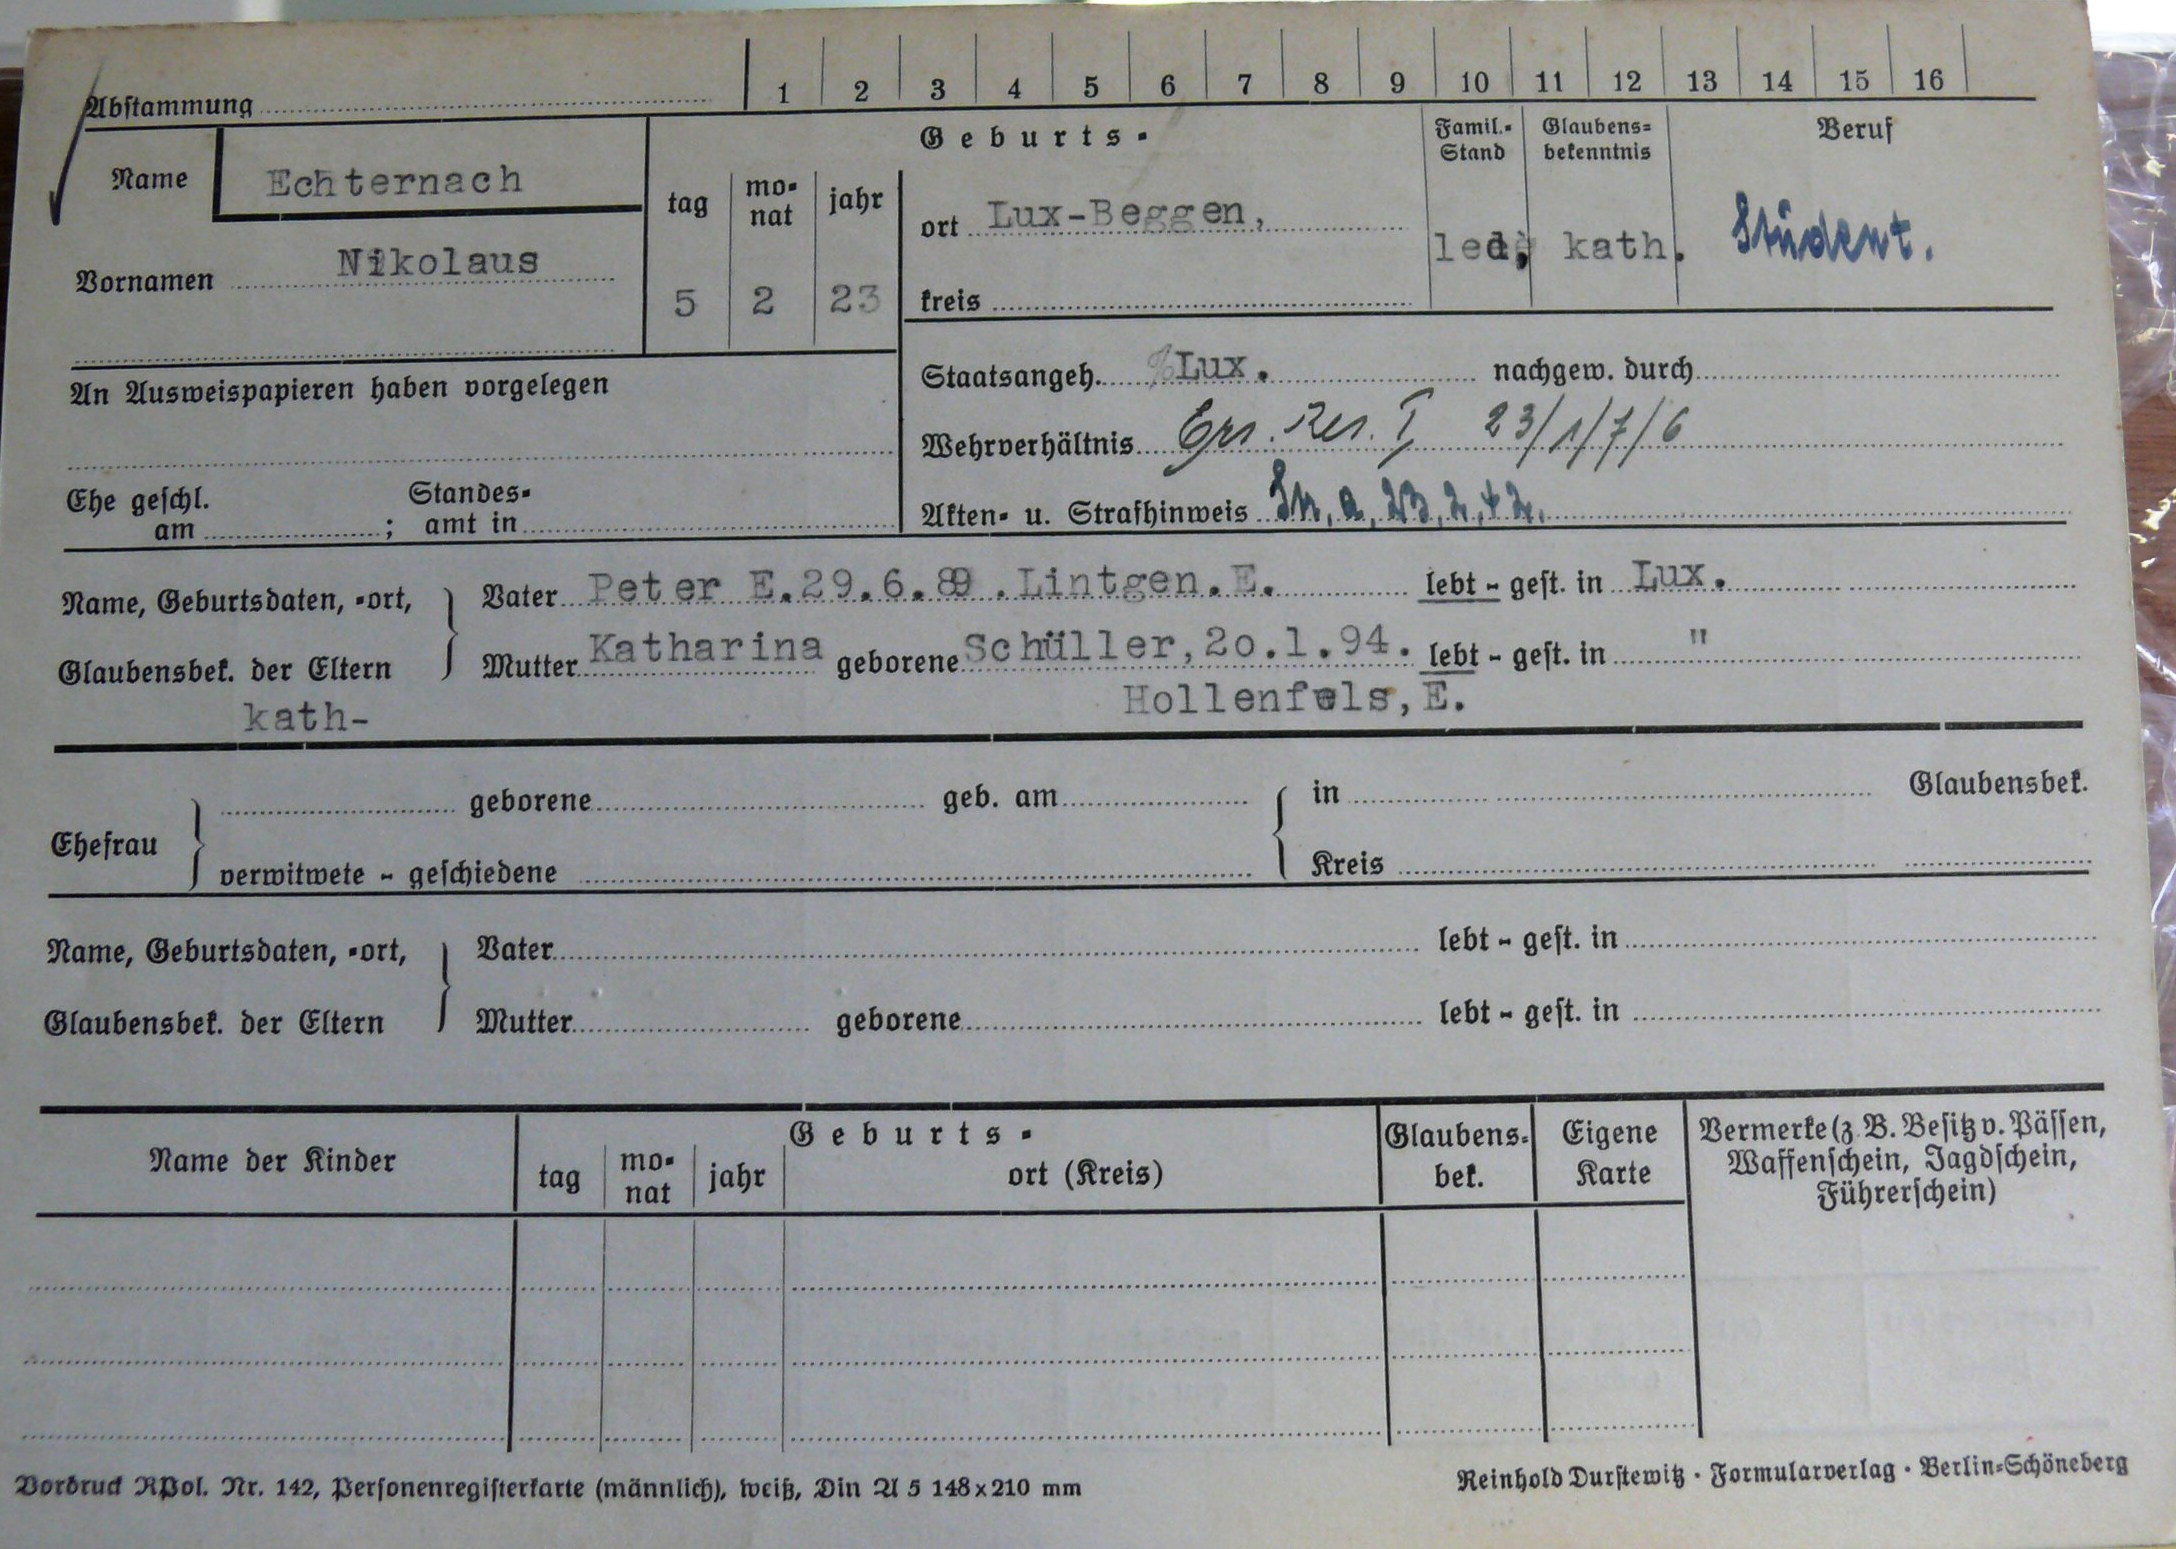 Abstammung 1 2 3 4 5 6 7 8 9 10 11 12 13 14 15 16
Name Echternach
Vornamen Nikolaus
Geburts-
tag monat jahr
5 2 23
ort Lux-Beggen,
kreis
Famil.-Stand
led.
Glaubens-bekenntnis
kath.
Beruf
Student.
An Ausweispapieren haben vorgelegen
Staatsangeh. Lux. nachgew. durch
Wehrverhältnis Ers. Res. I 23/1/7/6
Ehe geschl. Standes-
am ; amt in
Akten- u. Strafhinweis a, 23, 2, 42.
Name, Geburtsdaten, -ort, Vater Peter E.29.6.89.Lintgen.E. lebt - gest. in Lux.
Glaubensbek. der Eltern Mutter Katharina geborene Schüller,20.1.94. lebt - gest. in "
kath- Hollenfels,E.
geborene geb. am in Glaubensbek.
Ehefrau
verwitwete - geschiedene Kreis
Name, Geburtsdaten, -ort, Vater lebt - gest. in
Glaubensbek. der Eltern Mutter geborene lebt - gest. in
Name der Kinder
Geburts-
tag monat jahr ort (Kreis)
Glaubens-
bek.
Eigene
Karte
Vermerke (z. B. Besitz v. Pässen,
Waffenschein, Jagdschein,
Führerschein)
Vordruck RPol. Nr. 142, Personenregisterkarte (männlich), weiß, Din A 5 148x210 mm
Reinhold Durstewitz · Formularverlag · Berlin-Schöneberg